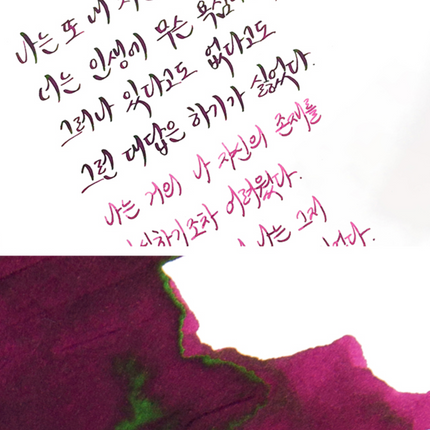 나는 또 내
너는 인생에 무슨 욕심이
그러나 있다고도 없다고도
그런 대답은 하기가 싫었다.
나는 거의 나 자신의 존재를
하기조차 어려웠다.
나는 그저